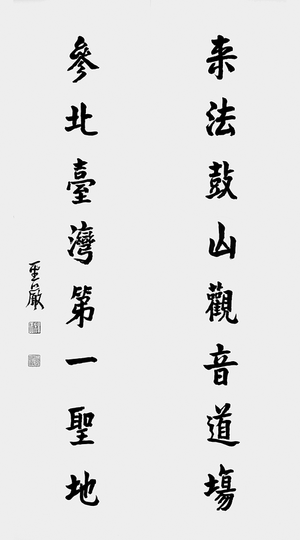 来法鼓山觀音道場
參北臺灣第一聖地
聖嚴